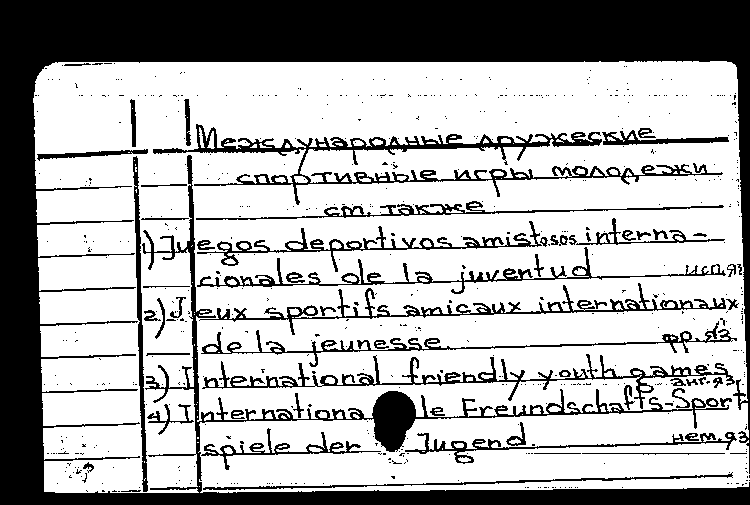 Международные дружеские
спортивные игры молодежи
см. также
1) Juegos deportivos amistosos interna-
cionales de la juventud исп.яз
2) Jeux sportifs amicaux internationaux
de la jeunesse фр.яз.
3) International friendly youth games
анг.яз.
4) Internationale Freundschafts-Sport
spiele der Jugend. нем.яз